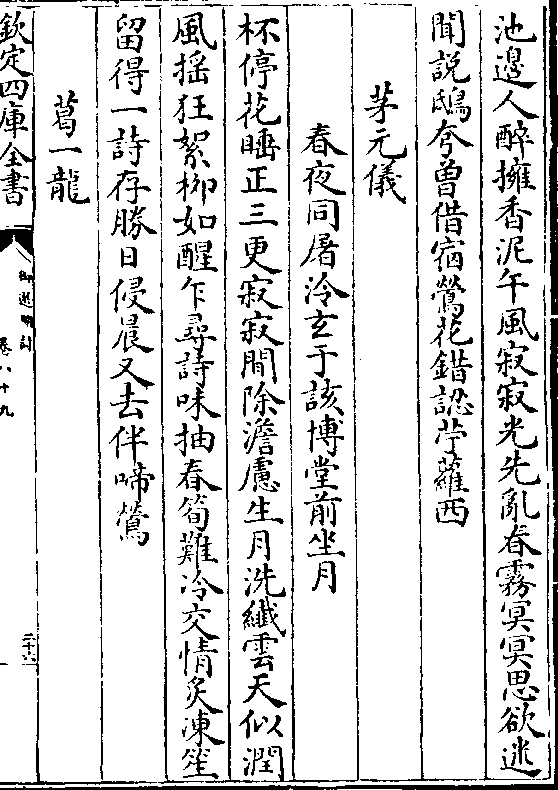 池邊人醉擁香泥午風寂寂光先亂春霧冥冥思欲迷
聞説鴟夸曾借宿鶯花錯認苧蘿西
茅元儀
春夜同屠泠玄于該博堂前坐月
杯停花睡正三更寂寂閒除澹慮生月洗纖雲天似潤
風揺狂絮柳如醒乍尋詩味抽春筍難冷交情炙凍笙
留得一詩存勝日侵晨又去伴啼鶯
葛一龍
欽定四庫全書
御選明詩
卷八十九
二十六